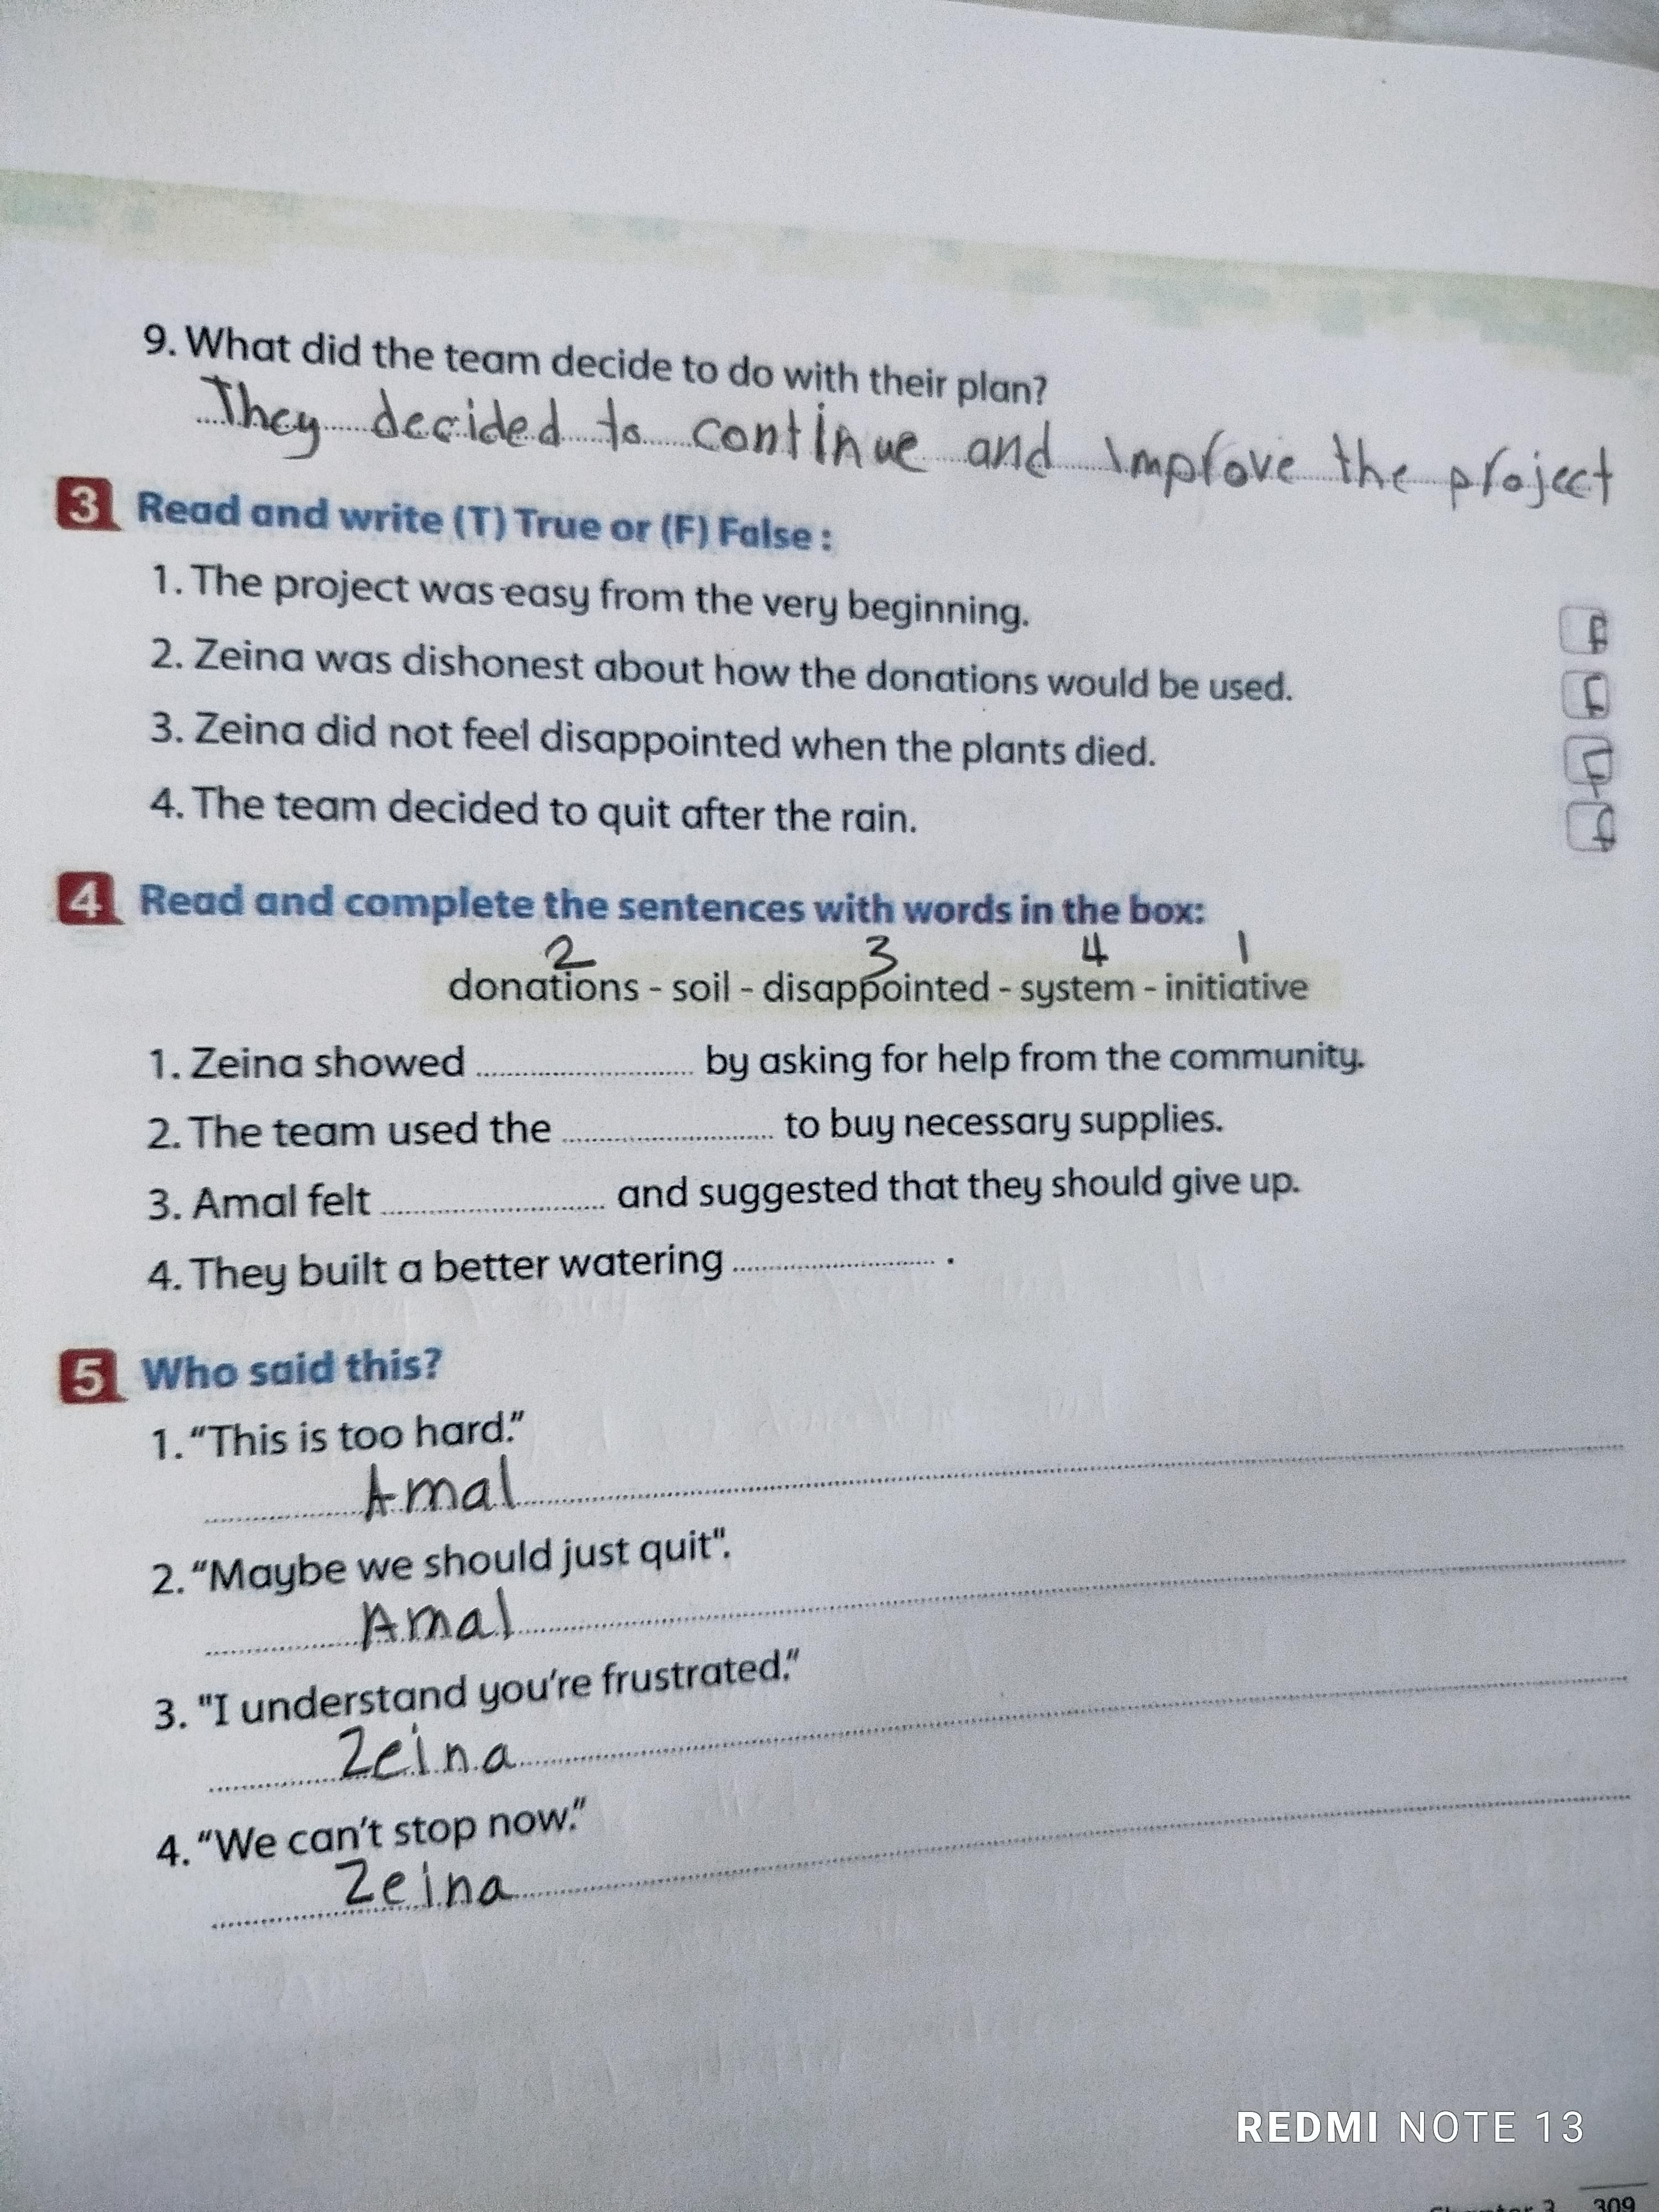 9. What did the team decide to do with their plan?
They decided to continue and improve the project
3 Read and write (T) True or (F) False :
1. The project was easy from the very beginning. F
2. Zeina was dishonest about how the donations would be used. F
3. Zeina did not feel disappointed when the plants died. F
4. The team decided to quit after the rain. F
4 Read and complete the sentences with words in the box:
2 3 4 1
donations - soil - disappointed - system - initiative
1. Zeina showed .......................... by asking for help from the community.
2. The team used the .......................... to buy necessary supplies.
3. Amal felt .......................... and suggested that they should give up.
4. They built a better watering .......................... .
5 Who said this?
1. “This is too hard.”
Amal
2. “Maybe we should just quit".
Amal
3. "I understand you're frustrated."
Zeina
4. “We can't stop now.”
Zeina
REDMI NOTE 13
Chapter 3 309